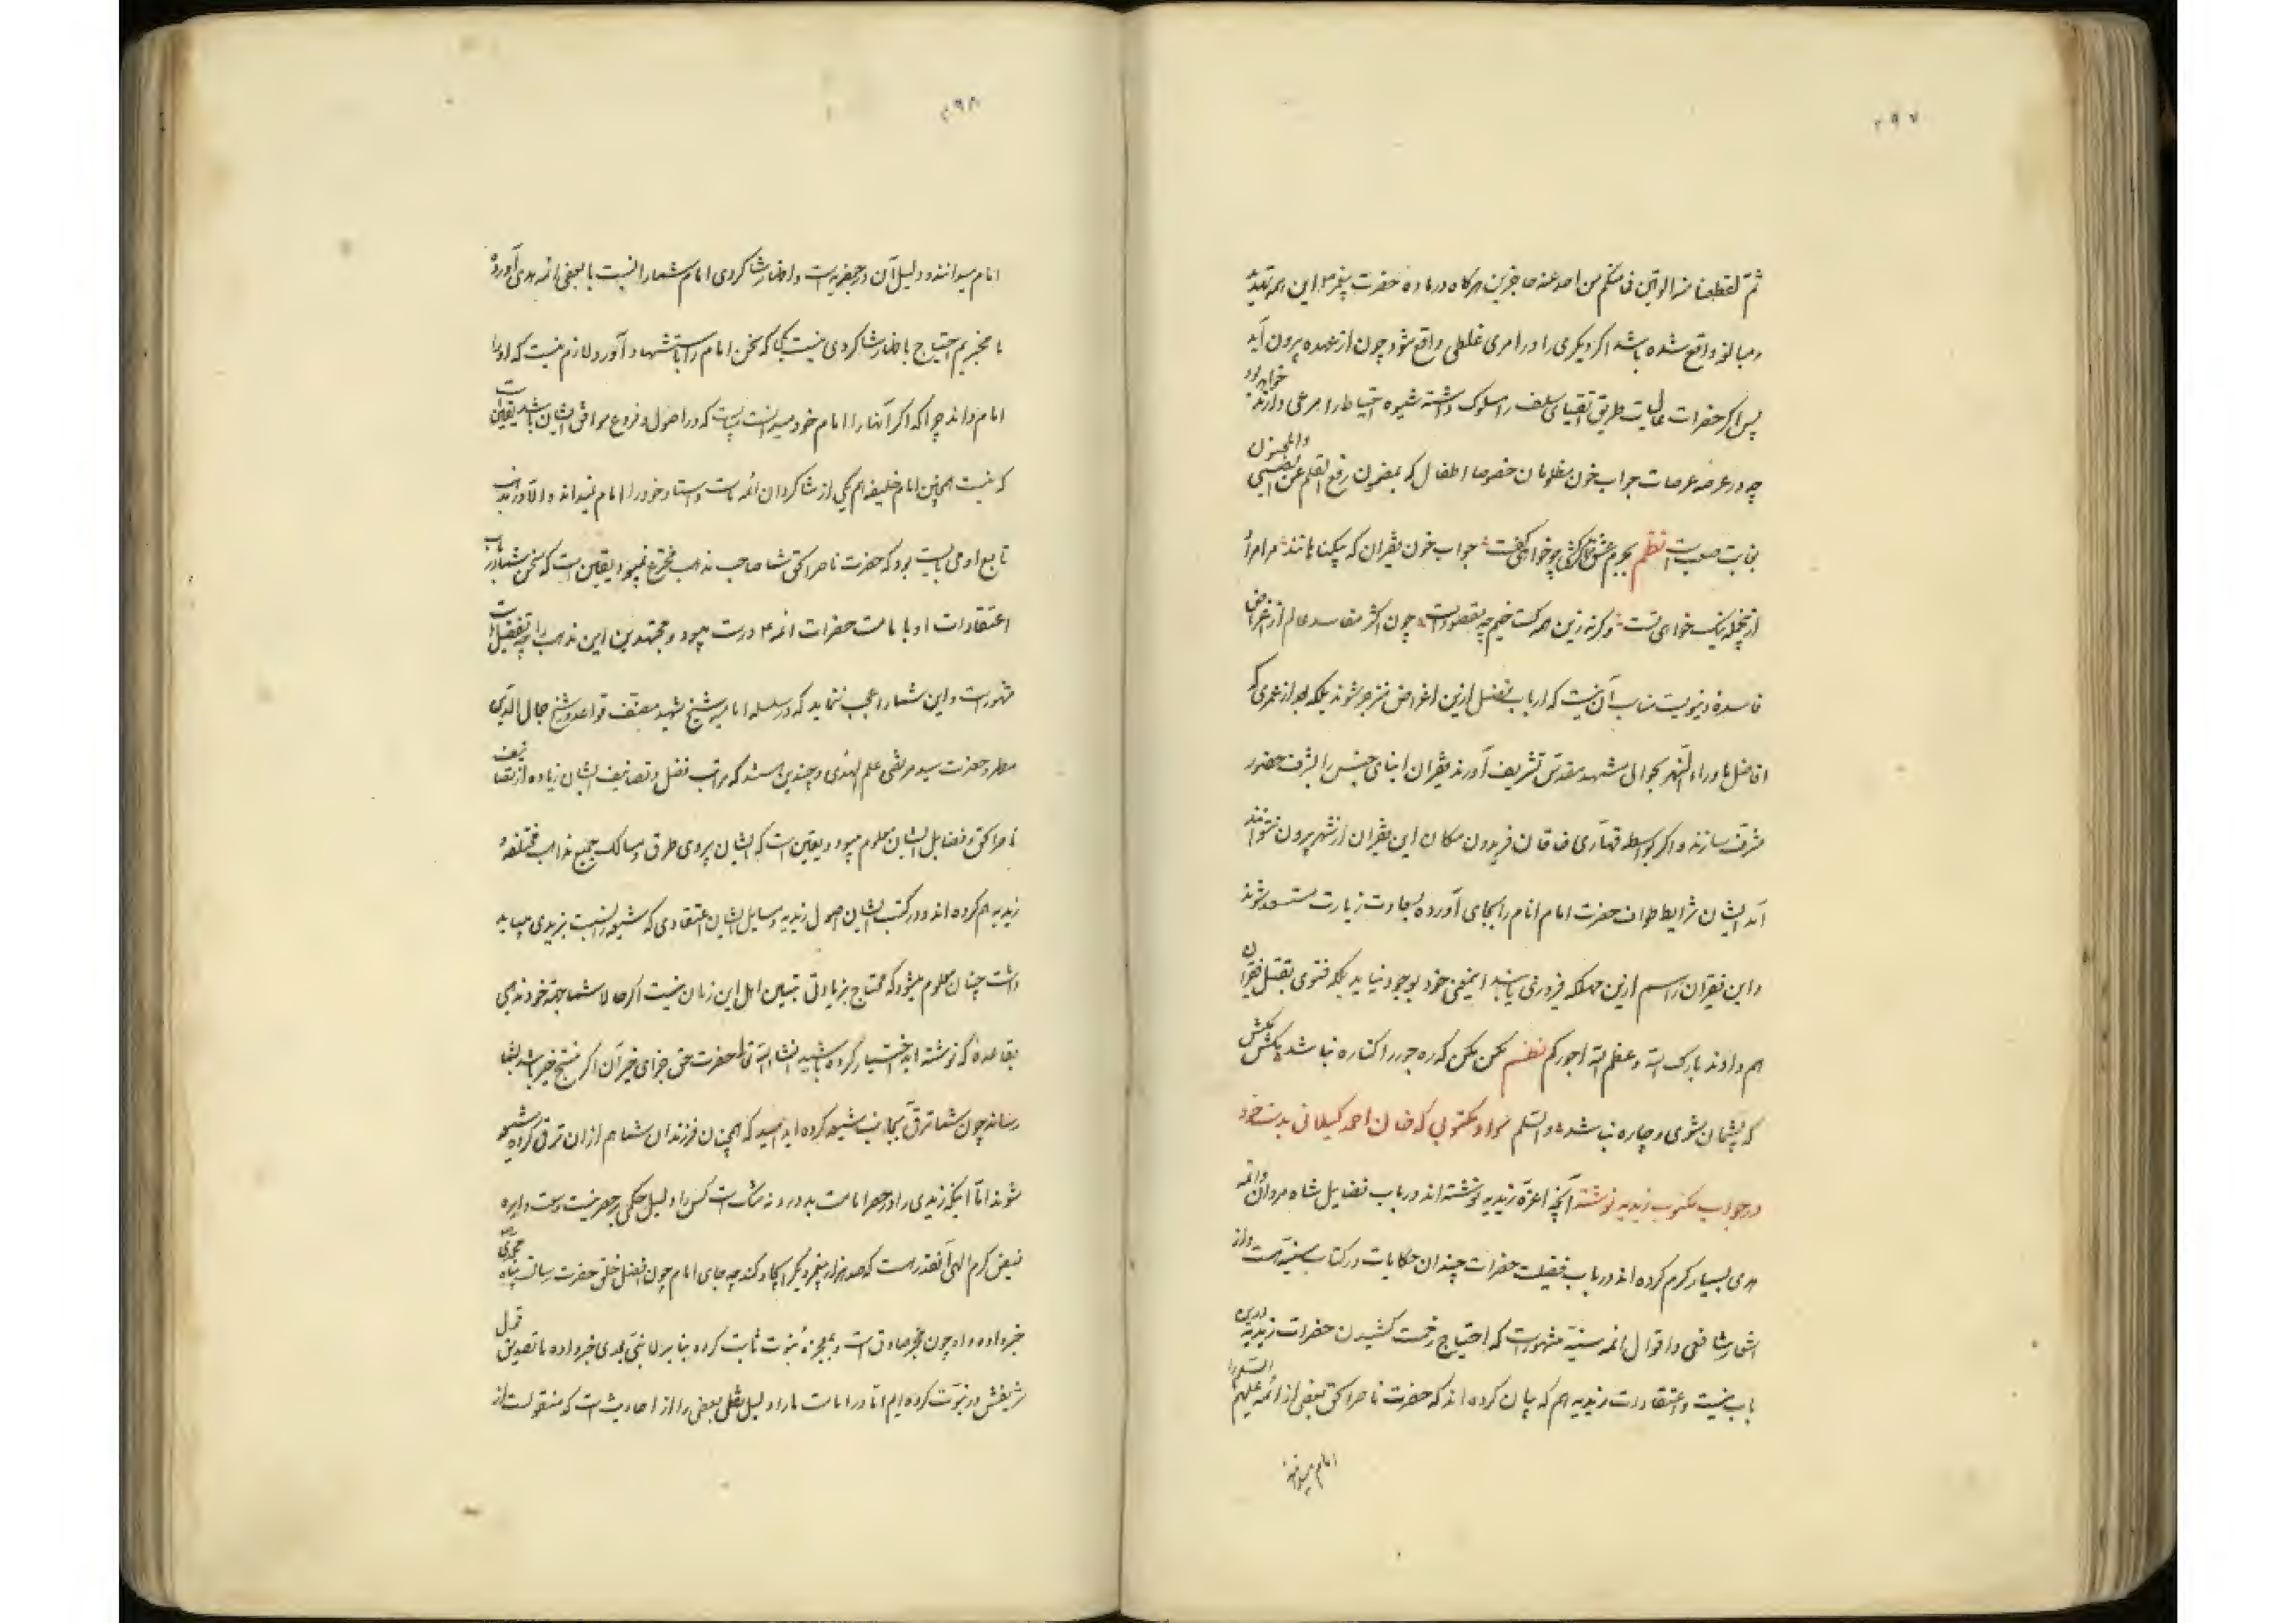 ۲۹۷
ثمّ لقطعنا منه الوتین فما منکم من احد عنه حاجزین هرکاه درماده حضرت پیغمبر این همه تهدید
و مبالغه واقع شده باشد اکر دیکری را در امری غلطی واقع شود چون از عهده پرون آید
پس اکر حضرات طریق اتقیای سلف را سلوک داشته شیوه احتیاط را مرعی دارند خواهد بود
چه در عرصه عرصات جواب خون مظلومان خصوصا اطفال که بمضمون رفع القلم عن الصبی والمجنون
بغایت صعب است نظم بجرم عشق توام میکشی چو خواهی کفت جواب خون فقیران که بیکناهانند مرا مراد
ازین جمله نیک خواهی تست و کرنه زین همه کستاخیم چه مقصودست چون اکثر مفاسد عالم از اغراض
فاسده دنیویست مناسب آن نیست که ارباب فضل ازین اغراض منزجر شوند بلکه بعد از عمری که
افاضل ماوراء النهر بحوالی مشهد مقدس تشریف آورند فقیران ابنای جنس را بشرف حضور
مشرف سازند و اکر بواسطه قهاری خاقان فریدون مکان این فقیران از شهر پرون نتوانند
آمد ایشان شرایط طواف حضرت امام انام را بجای آورده بسعادت زیارت مستسعد شوند
و این فقیران را هم ازین مهلکه فیروزی یابند اینمعنی خود بوجود نیامد بلکه فتوی بقتل فقیران
هم دادند بارک الله و عظم الله اجورکم نظم مکن مکن که ره جور را کناره نباشد مکش مکش
که پشیمان شوی و چاره نباشد والسلم سواد مکتوبی که خان احمد کیلانی بدست خود
در جواب مکتوب زیدیه نوشته آنچه اعزّه زیدیه نوشته اند در باب فضایل شاه مردان و ائمه
هدی بسیار کرم کرده اند در باب فضیلت حضرات چندان حکایات در کتاب سنیه هست و از
اشعار شافعی و اقوال ائمه سنیه مشهورست که احتیاج زحمت کشیدن حضرات زیدیه درین
باب نیست و اعتقادات زیدیه هم که بیان کرده اند که حضرت ناصرالحق بعضی از ائمه علیهم السلام را
امام میدانند
۲۹۸
امام میدانند و دلیل آن در جعفریه است و اظهار شاکردی امام شما را نسبت با بعضی ائمه هدی آورده
با محبریم احتیاج باظهار شاکردی نیست بلکه سخن امام را باستشهاد آورد و لازم نیست که او را
امام داند چرا که اکر آنها را امام خود میدانست میبایست که در اصول و فروع موافق ایشان باشد یقین است
که نیست همچنین امام خلیفه هم یکی از شاکردان ائمه ماست و استاد خود را امام نمیداند و الا در مذهب
تابع او می بایست بود که حضرت ناصرالحق شما صاحب مذهب مخترع نمیبود یقین است که سخن شما در باب
اعتقادات او با امامت حضرات ائمه ع درست نمیبود و مجتهدین این مذهب را چه تفضیل است
مشهورست و این شما را عجب ننماید که در سلسله امامیه شیخ شهید مصنف قواعد و شیخ جمال الدین
مطهر و حضرت سید مرتضی علم الهدی و چندین هستند که مراتب فضل و تصانیف ایشان زیاده از تصانیف
ناصرالحق و فضایل ایشان معلوم میبود و یقین است که ایشان پیروی طرق و مسالک جمیع مذاهب مختلفه و
زیدیه هم کرده اند و در کتب ایشان اصول زیدیه و مسایل ایشان اعتقادی که شیعه را نسبت بزیدی میباید
داشت چنان معلوم میشود که محتاج بزیادتی تبیین اهل این زمان نیست اکر حالا شما بجهة خود مذهبی
بقاعده که نوشته اید اختیار کرده باشید انشاء الله تعالی حضرت حق جزای خیر آن اکر منتج خیر باشد بشما
رساند چون شما ترقی بجانب شیعه کرده اید امید که همچنان فرزندان شما هم ازان ترقی کرده شیعه
شوند اما اینکه زیدی را در حصر امامت بدوازده شک است کس را دلیل حکمی بر حصر نیست وسعت دایره
فیض کرم الهی آنقدر هست که صد هزار پیغمبر دیکر ایجاد کند چه جای امام چون افضل خلق حضرت رسالت پناه محمدی ص
خبر داده و او چون مخبر صادق است و بمعجزه نبوت ثابت کرده بنابر لا نبی بعدی خبر داده ما تصدیق قول
شریفش در نبوت کرده ایم اما در امامت ما را دلیل نقلی بعضی را از احادیث است که منقولست از